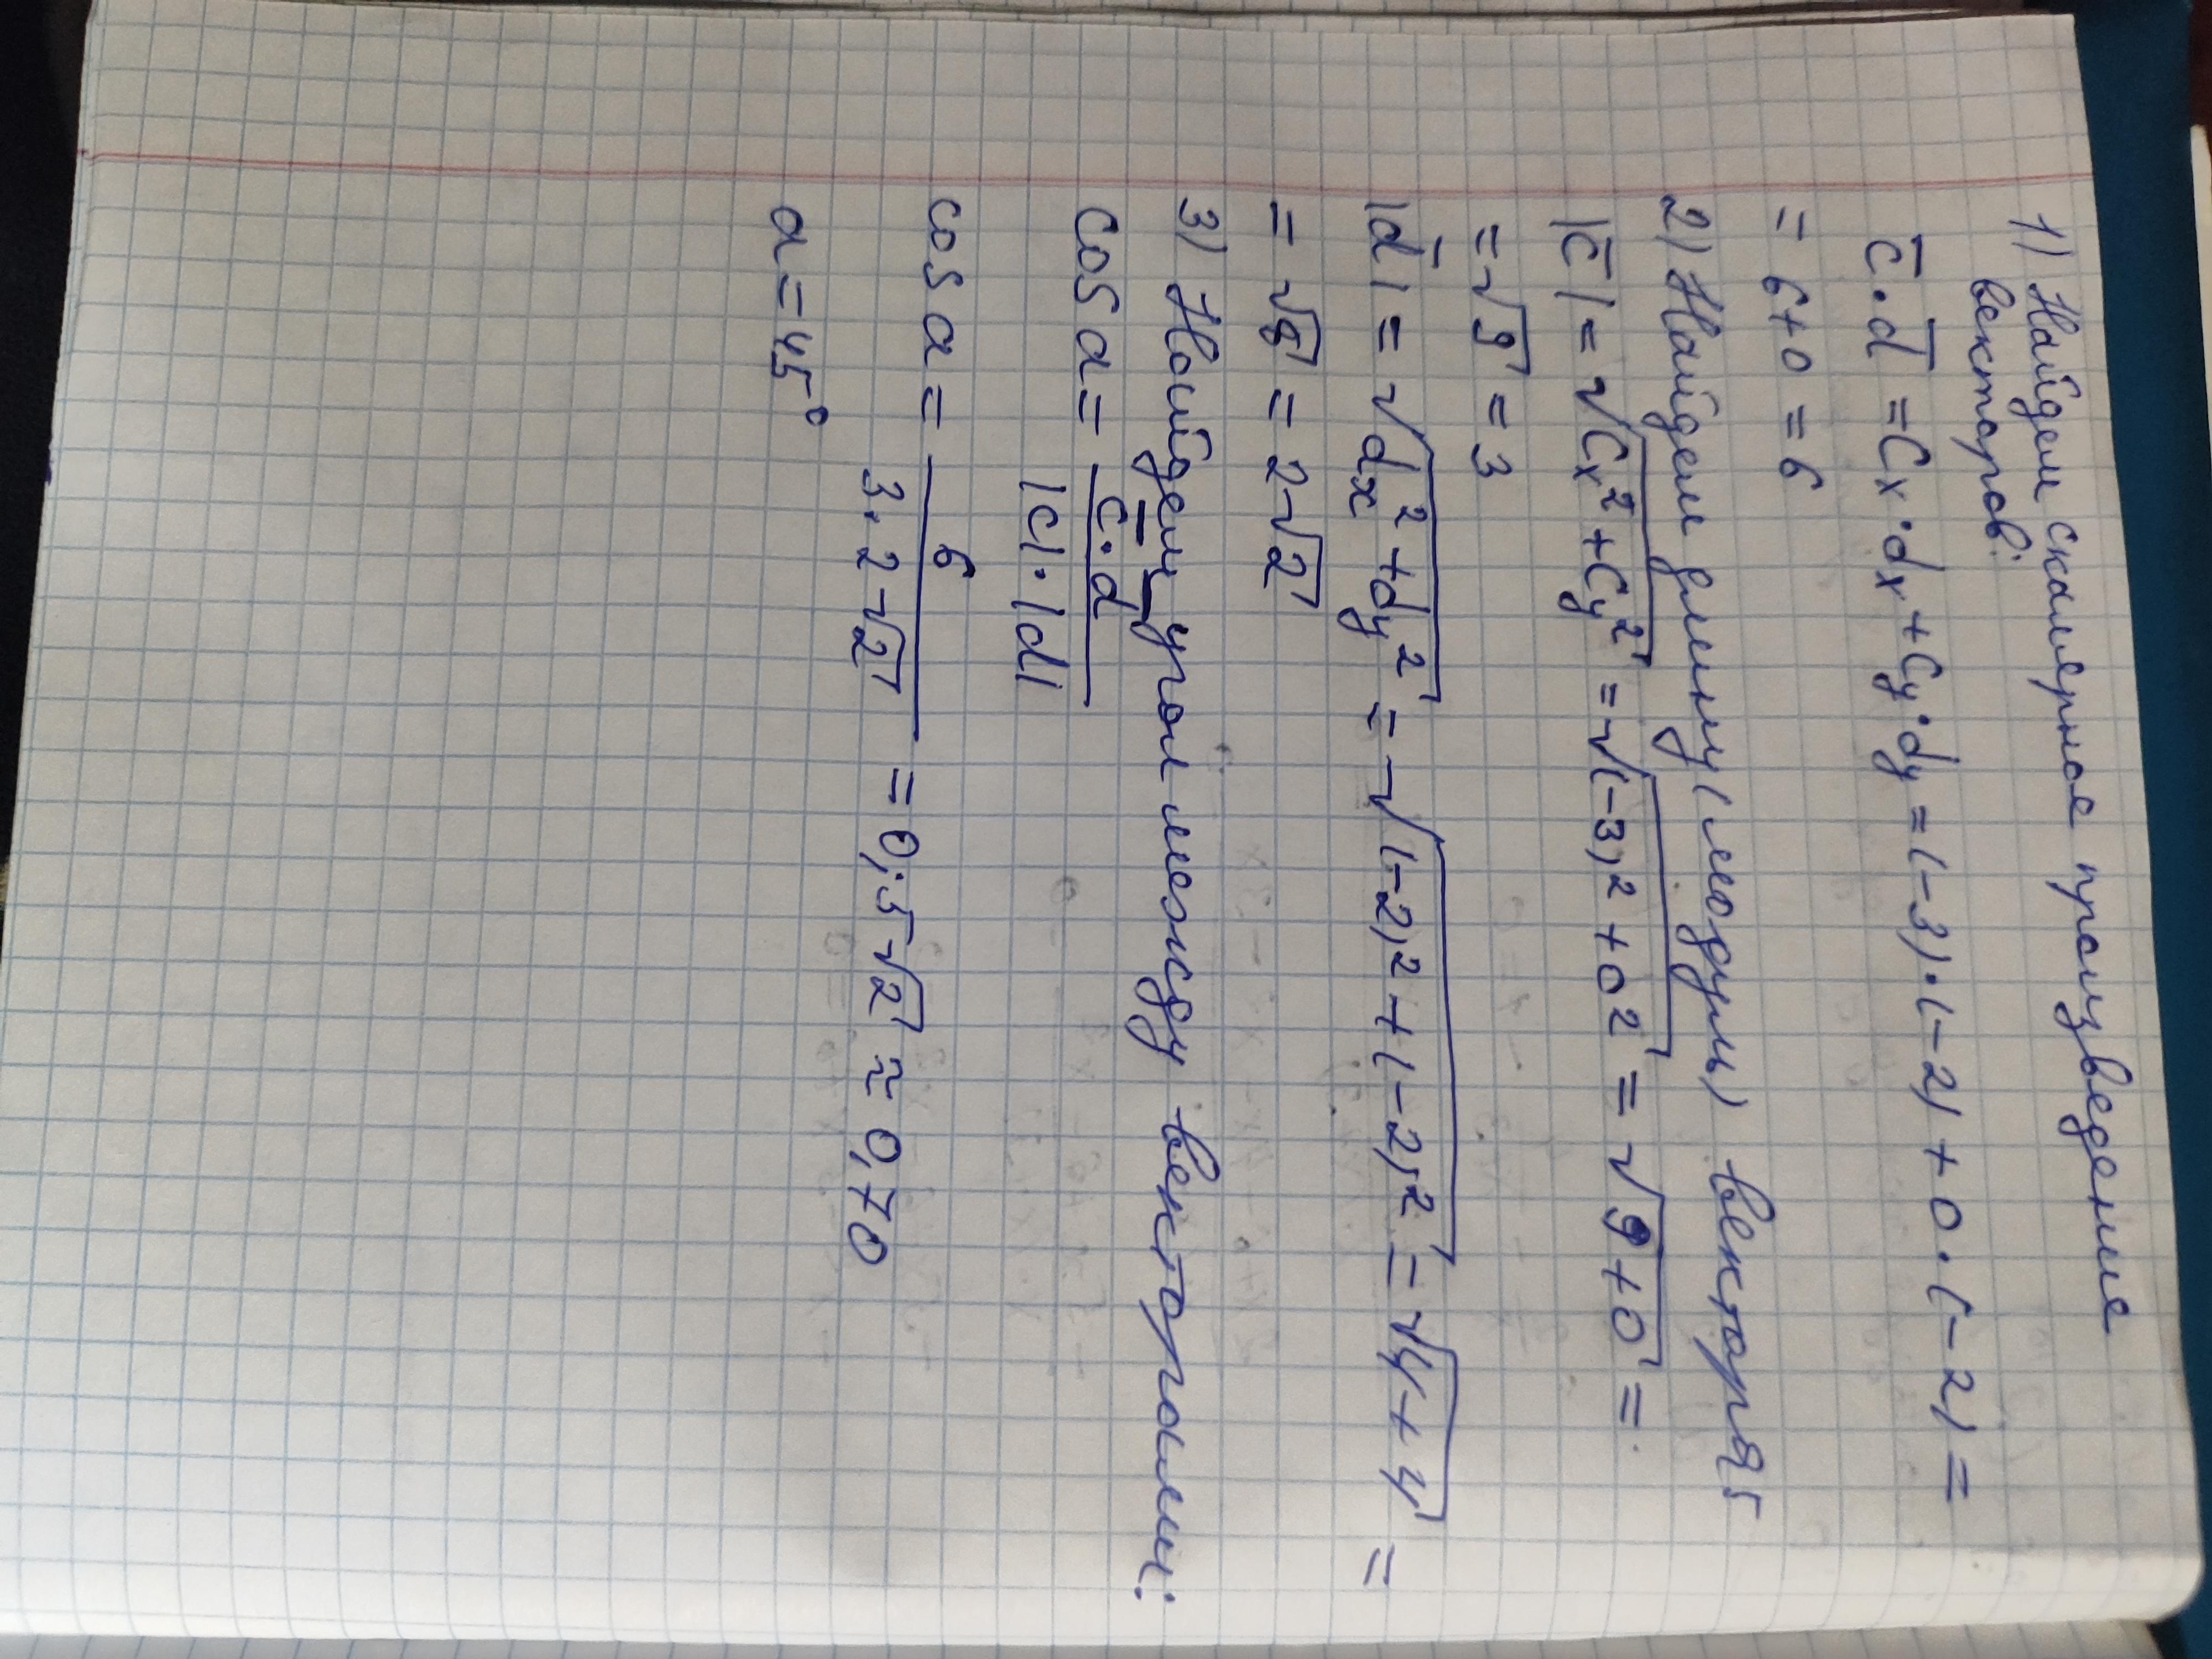 1) Найдем скалярное произведение
векторов:
c̅·d̅ = Cx·dx + Cy·dy = (-3)·(-2) + 0·(-2) =
= 6+0 = 6
2) Найдем длину (модуль) вектора
|c̅| = √(Cx² + Cy²) = √((-3)² + 0²) = √(9+0) =
= √9 = 3
|d̅| = √(dx² + dy²) = √((-2)² + (-2)²) = √(4+4) =
= √8 = 2√2
3) Найдем угол между векторами:
cos α = (c̅·d̅)/(|c|·|d|)
cos α = 6/(3·2√2) = 0,5√2 ≈ 0,70
α = 45°